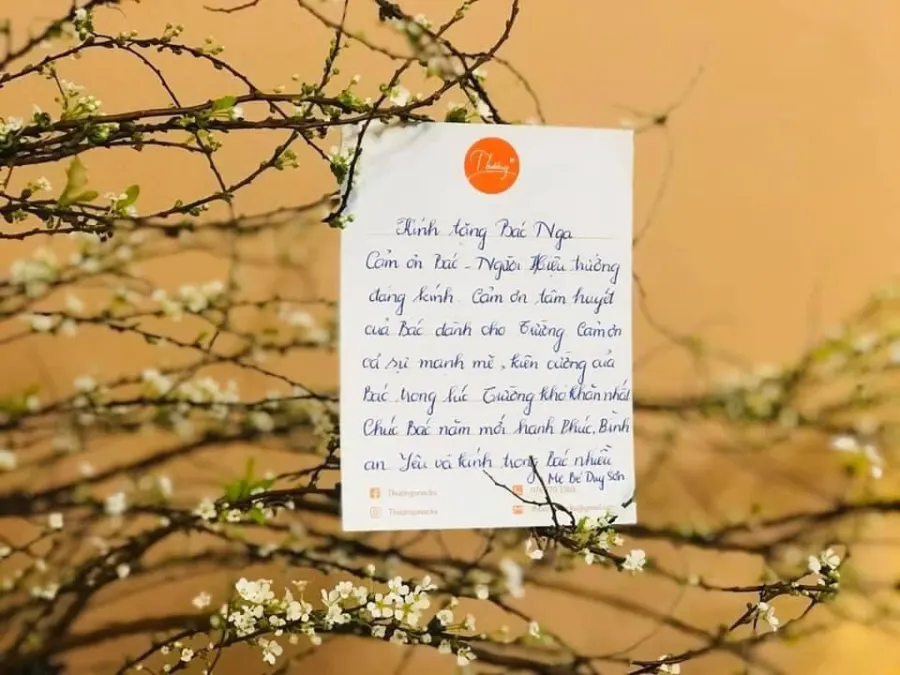 Kính tặng Bác Nga
Cảm ơn Bác - Người Hiệu trưởng
đáng kính. Cảm ơn tâm huyết
của Bác dành cho Trường Cảm ơn
cả sự mạnh mẽ, kiên cường của
Bác trong lúc Trường khó khăn nhất
Chúc Bác năm mới hạnh Phúc, Bình
an Yêu và kính trọng Bác nhiều
Mẹ Bé Duy Sơn